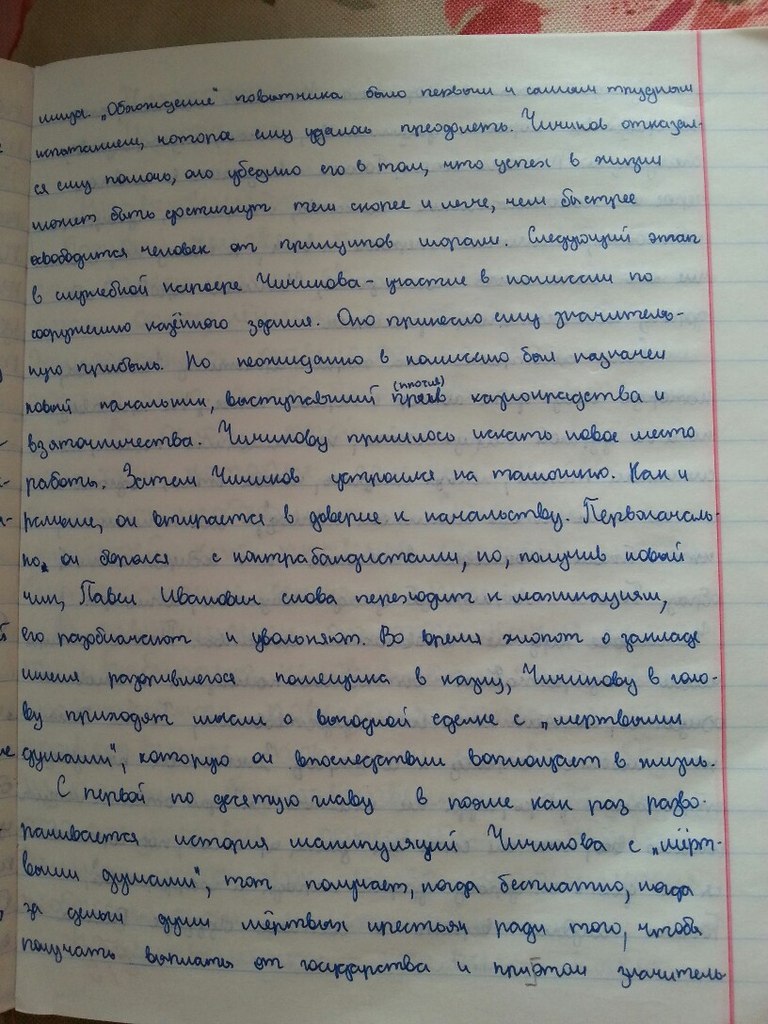 лища. „Обхождение" повытчика было первым и самым трудным
испытанием, которое ему удалось преодолеть. Чичиков отказал-
ся ему помочь, это убедило его в том, что успех в жизни
может быть достигнут тем скорее и легче, чем быстрее
освободится человек от принципов морали. Следующий этап
в служебной карьере Чичикова - участие в комиссии по
сооружению казённого здания. Оно принесло ему значитель-
ную прибыль. Но неожиданно в комиссию был назначен
новый начальник, выступавший (против) казнокрадства и
взяточничества. Чичикову пришлось искать новое место
работы. Затем Чичиков устроился на таможню. Как и
раньше, он втирается в доверие к начальству. Первоначаль-
но, он боролся с контрабандистами, но, получив новый
чин, Павел Иванович снова переходит к махинациям,
его разоблачают и увольняют. Во время хлопот о закладе
имения разорившегося помещика в казну, Чичикову в голо-
ву приходят мысли о выгодной сделке с „мертвыми
душами", которую он впоследствии воплощает в жизнь.
С первой по десятую главу в поэме как раз разво-
рачивается история манипуляций Чичикова с „мёрт-
выми душами", тот получает, когда бесплатно, когда
за деньги души мёртвых крестьян ради того, чтобы
получать выплаты от государства и при этом значитель